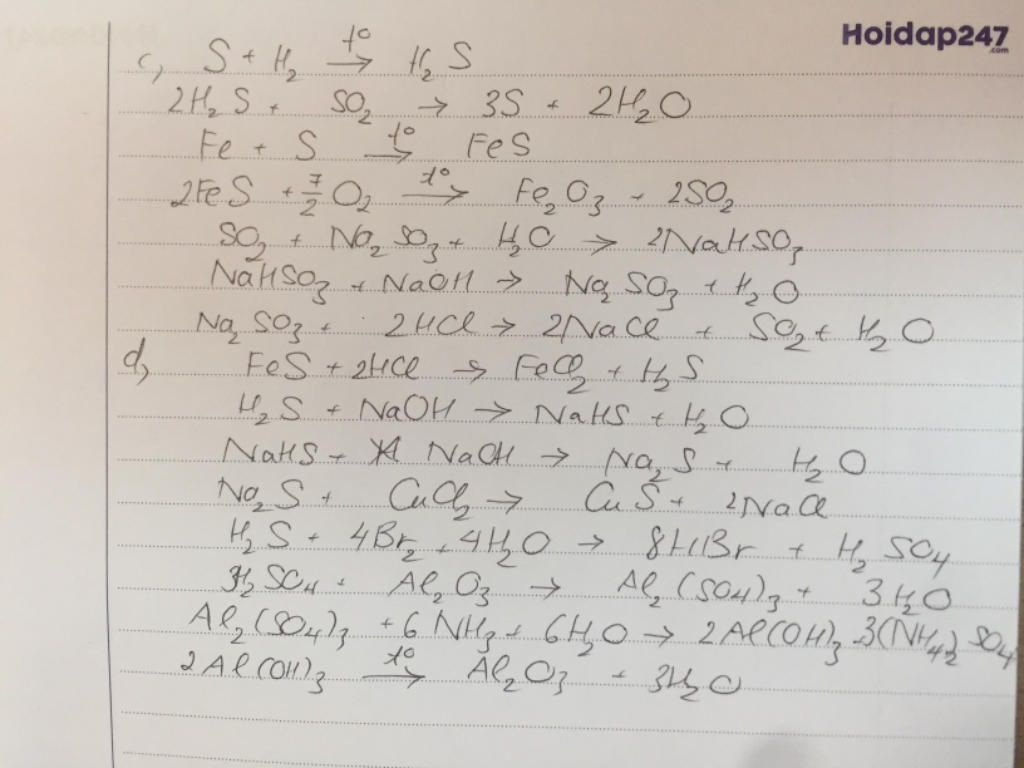 Hoidap247
.com
c, S + H₂ →(t°) H₂S
2H₂S + SO₂ → 3S + 2H₂O
Fe + S →(t°) FeS
2FeS + 7/2 O₂ →(t°) Fe₂O₃ + 2SO₂
SO₂ + Na₂SO₃ + H₂O → 2NaHSO₃
NaHSO₃ + NaOH → Na₂SO₃ + H₂O
Na₂SO₃ + 2HCl → 2NaCl + SO₂ + H₂O
d, FeS + 2HCl → FeCl₂ + H₂S
H₂S + NaOH → NaHS + H₂O
NaHS + NaOH → Na₂S + H₂O
Na₂S + CuCl₂ → CuS + 2NaCl
H₂S + 4Br₂ + 4H₂O → 8HBr + H₂SO₄
3H₂SO₄ + Al₂O₃ → Al₂(SO₄)₃ + 3H₂O
Al₂(SO₄)₃ + 6NH₃ + 6H₂O → 2Al(OH)₃ 3(NH₄)₂SO₄
2Al(OH)₃ →(t°) Al₂O₃ + 3H₂O